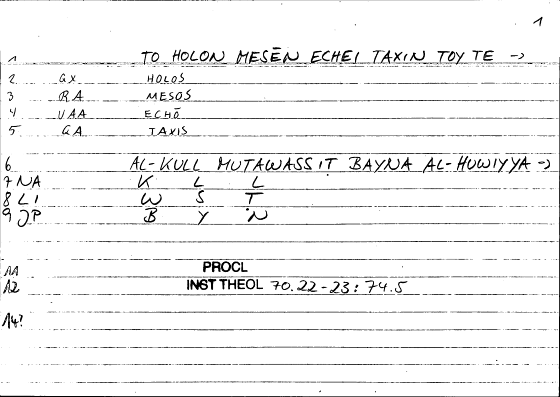 1
1 TO HOLON MESĒN ECHEI TAXIN TOY TE ->
2 GX HOLOS
3 RA MESOS
4 UAA ECHŌ
5 GA TAXIS
6 AL-KULL MUTAWASSIṬ BAYNA AL-HUWIYYA ->
7 NA K L L
8 LI W S Ṭ
9 JP B Y N
11 PROCL
12 INST THEOL 70.22-23: 74.5
14?